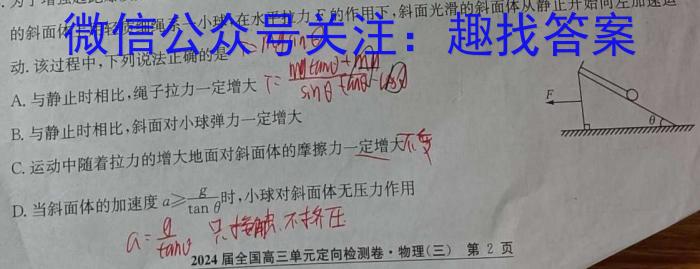 的斜面体
小球在水平拉力F的作用下,斜面光滑的斜面体从静止开始向左加速运
微信公众号关注：趣找答案
动.该过程中,下列说法正确的是
A.与静止时相比,绳子拉力一定增大
B.与静止时相比,斜面对小球弹力一定增大
F
θ
C.运动中随着拉力的增大地面对斜面体的摩擦力一定增大 不变
D.当斜面体的加速度 a≥g/tan θ时,小球对斜面体无压力作用
a=g/tanθ 只接触 不挤压
2024届全国高三单元定向检测卷·物理(三) 第2页